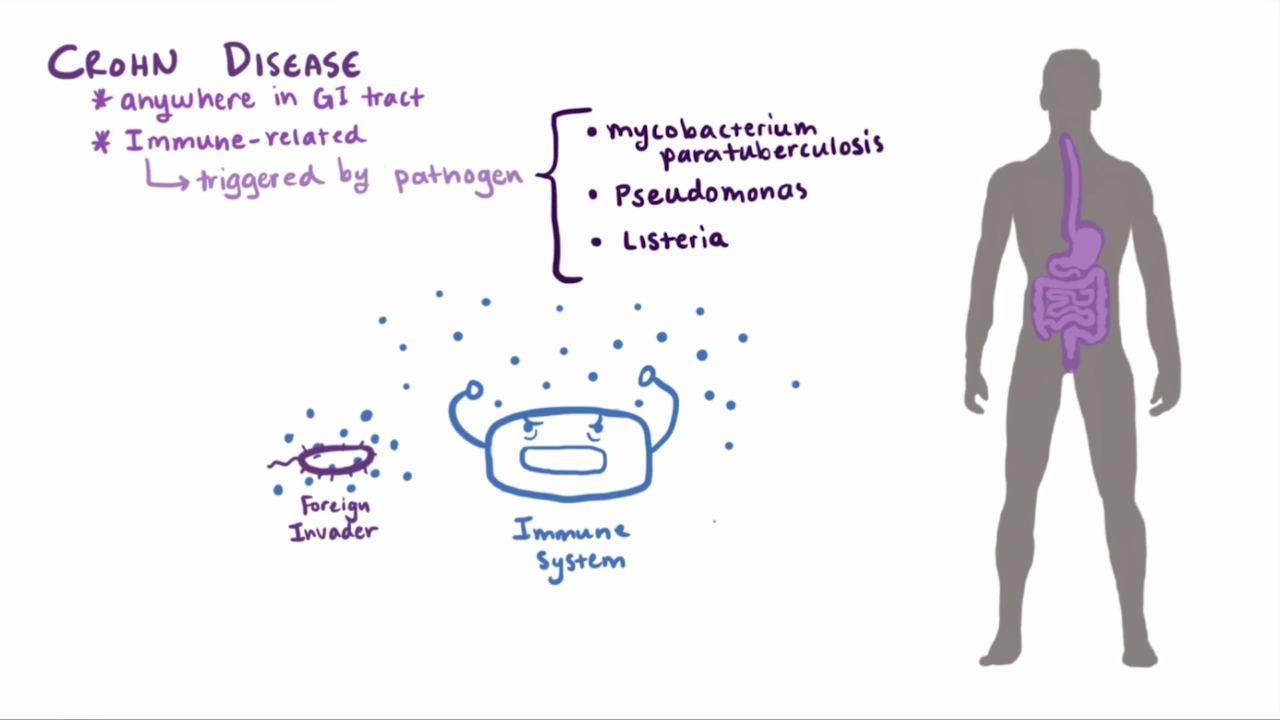 CROHN DISEASE
* anywhere in GI tract
* Immune-related
triggered by pathogen
• mycobacterium
paratuberculosis
• Pseudomonas
• Listeria
Foreign
Invader
Immune
System